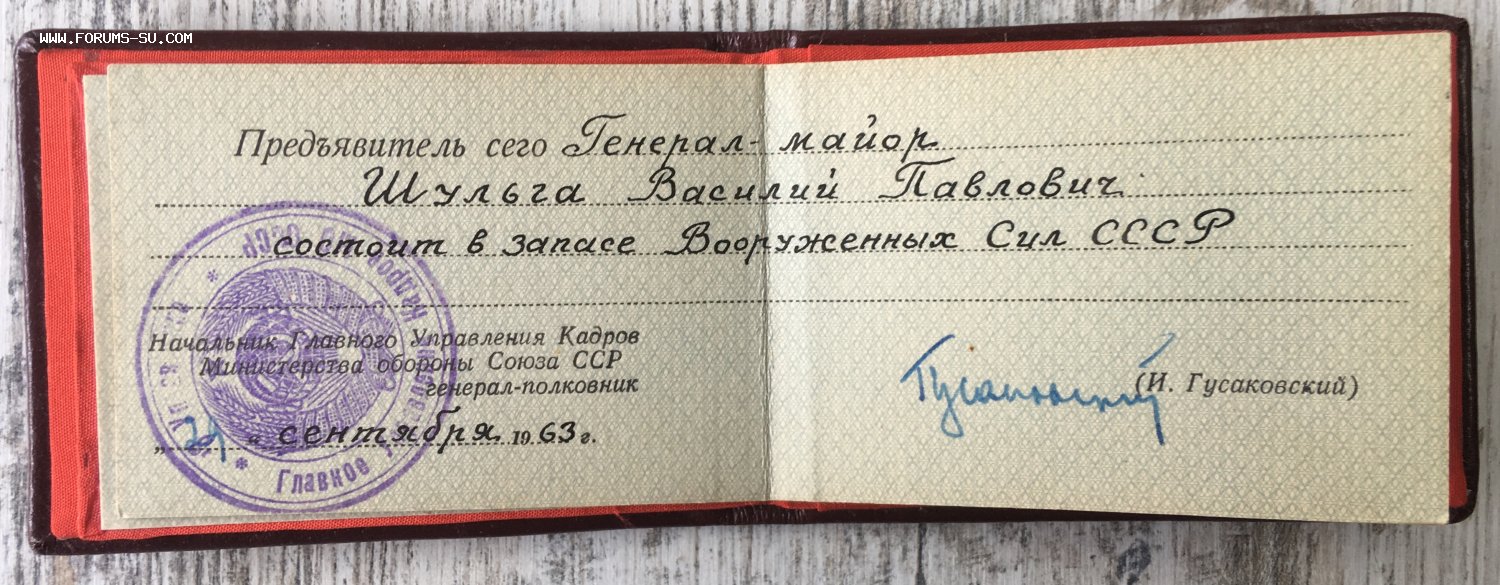 WWW.FORUMS-SU.COM
Предъявитель сего Генерал-майор
Шульга Василий Павлович
состоит в запасе Вооруженных Сил СССР
Начальник Главного Управления Кадров
Министерства обороны Союза ССР
генерал-полковник
Гусаковский (И. Гусаковский)
„ “ сентября 1963 г.
Главное Управление Кадров СССР